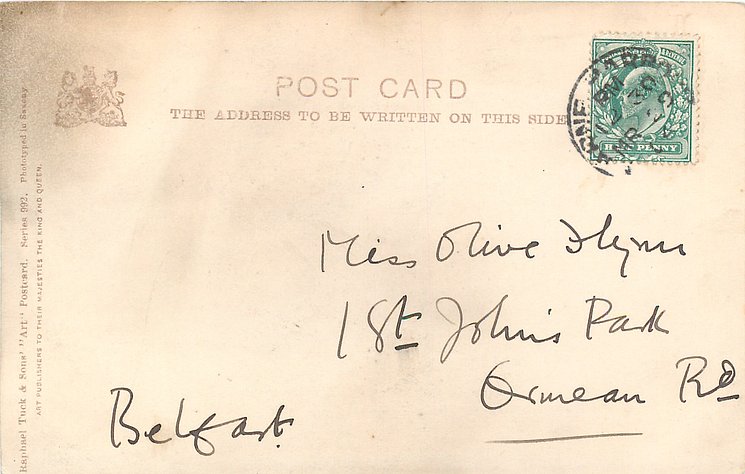 POST CARD
THE ADDRESS TO BE WRITTEN ON THIS SIDE
HALF PENNY
Miss Olive Flynn
1 St Johns Park
Ormeau Rd
Belfast.
Raphael Tuck & Sons' "Art" Postcard. Series 992. Phototyped in Saxony
ART PUBLISHERS TO THEIR MAJESTIES THE KING AND QUEEN.